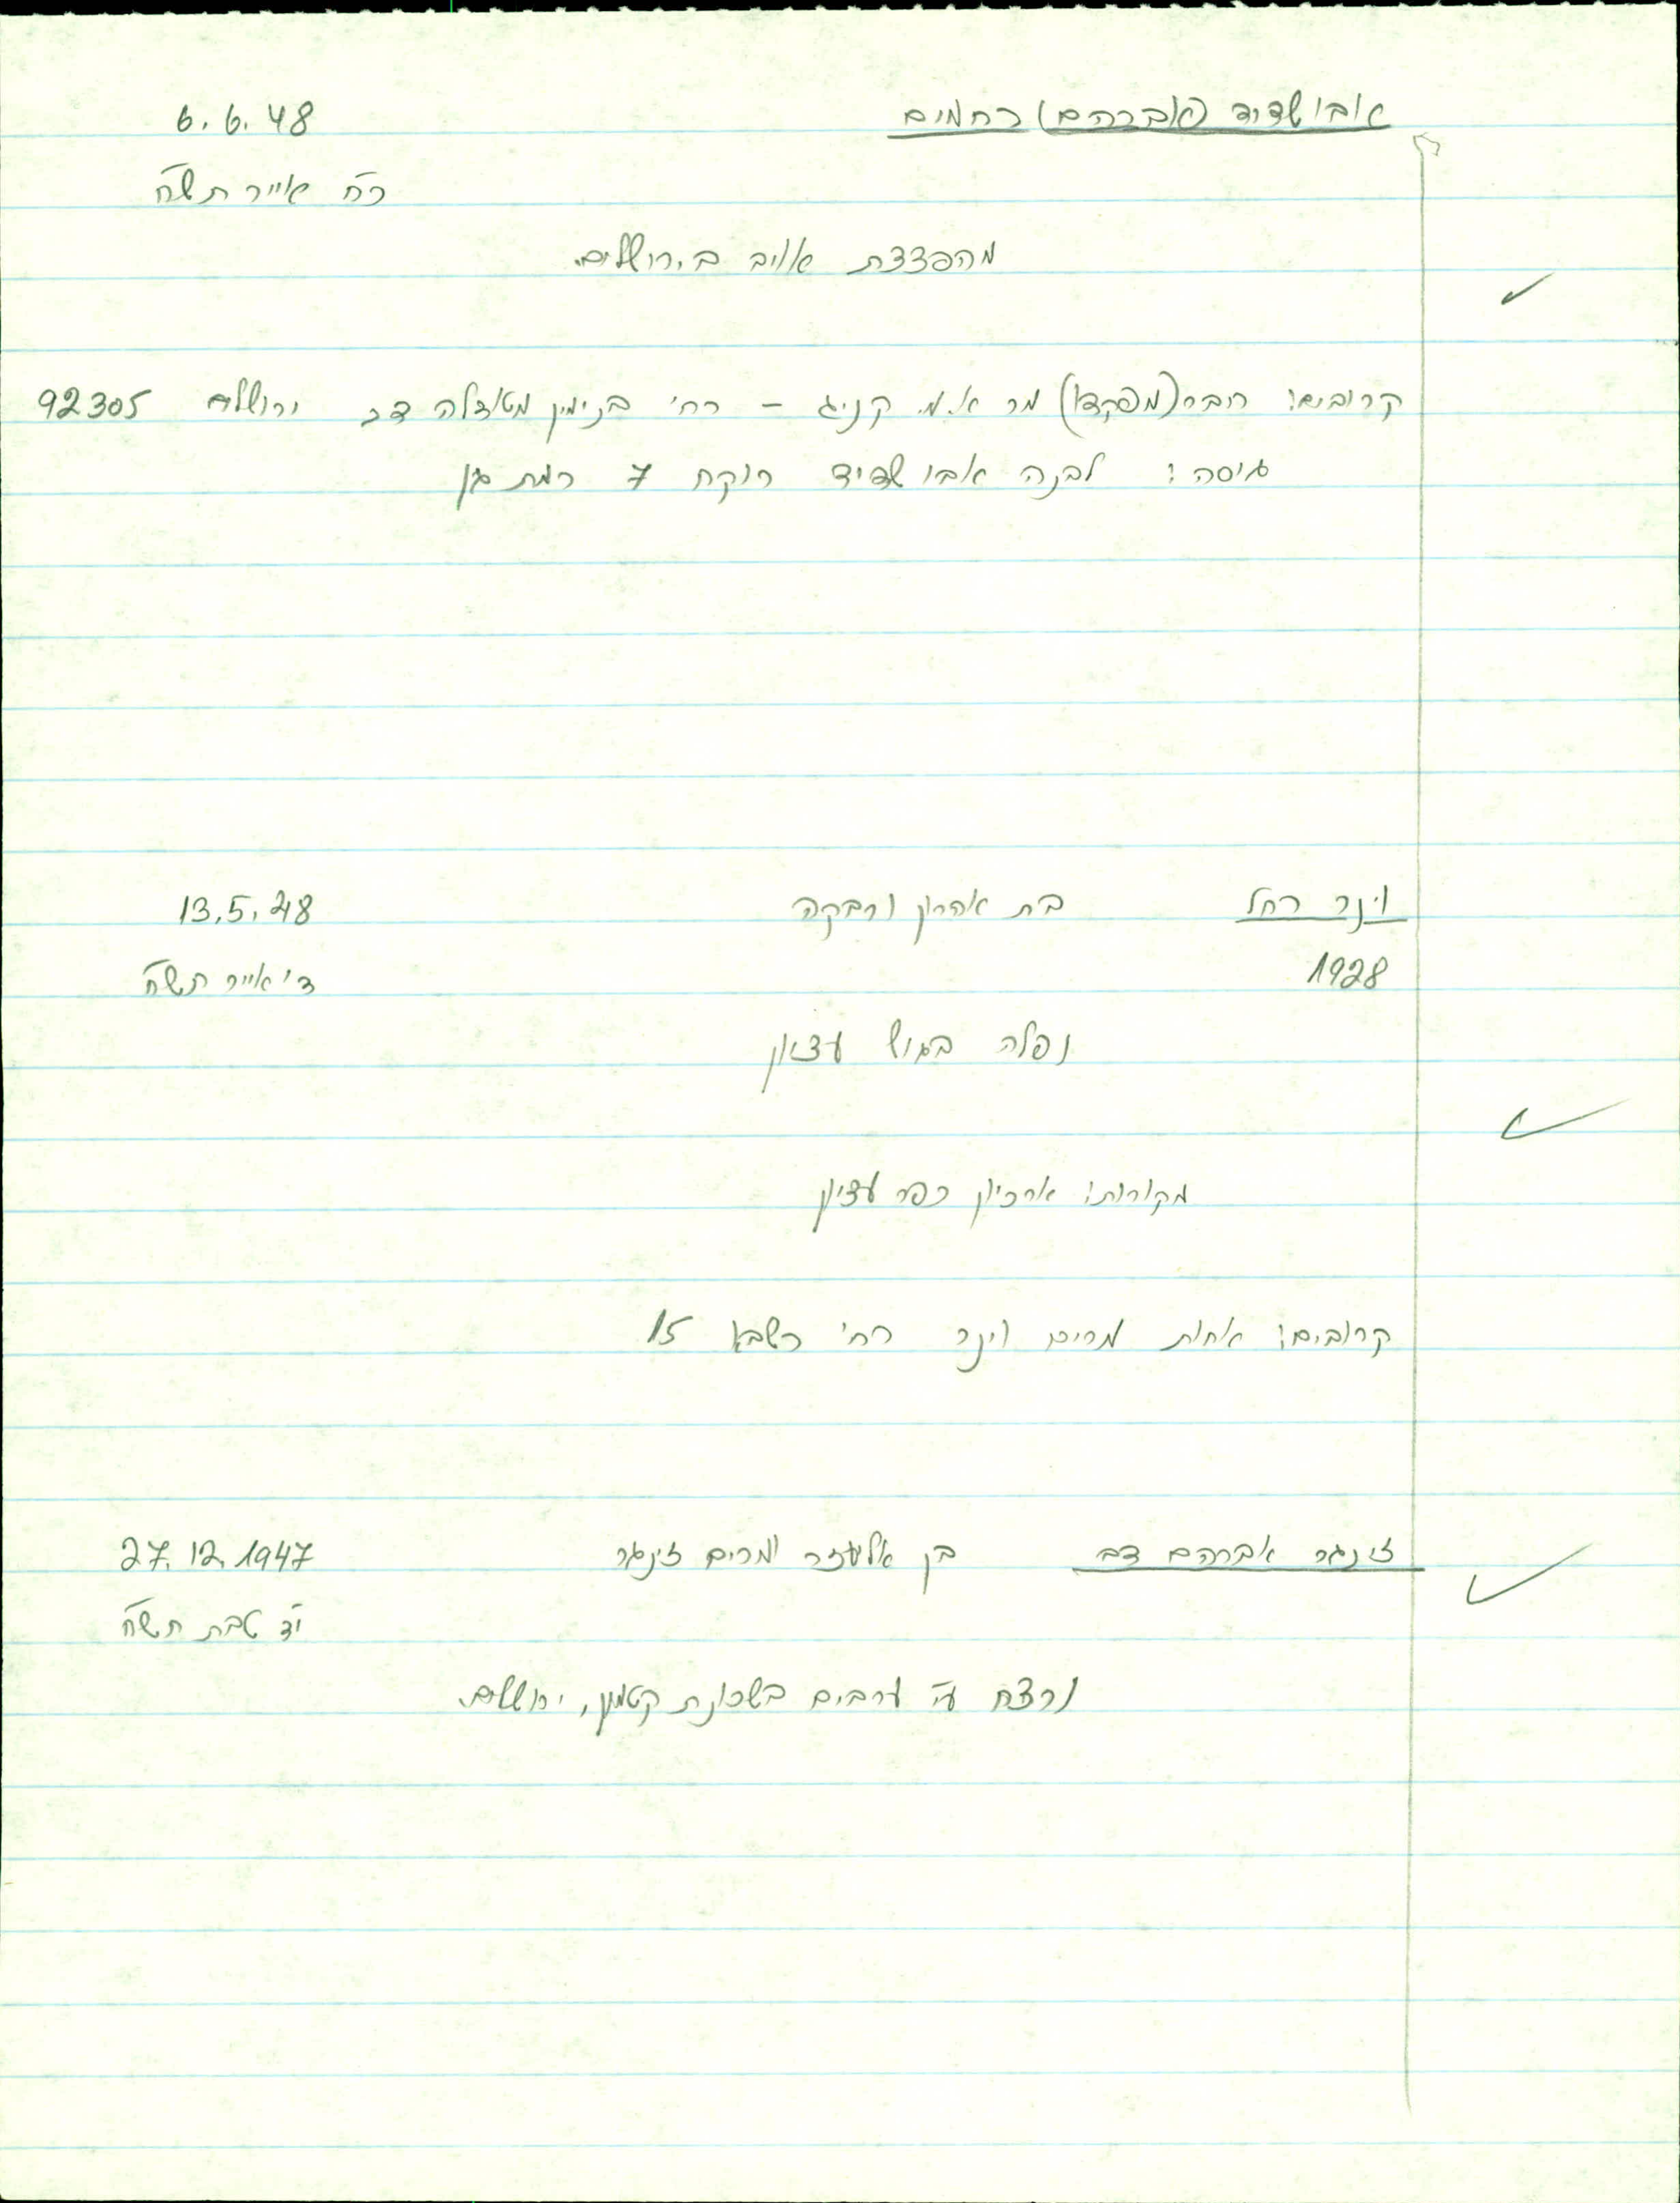 אבושדיד (אברהם) רחמים 6.6.48
כ"ח אייר תש"ח
מהפצצת אויב בירושלים.
קרובים: חבר (מפקדו) מר א.מ. קניג - רח' בנימין מטודלה 22 ירושלים 92305
גיסה: לבנה אבושדיד רוקח 7 רמת גן
וינר רחל בת אהרון ורבקה 13.5.48
1928 ד' אייר תש"ח
נפלה בגוש עציון
מקורות: ארכיון כפר עציון
קרובים: אחות מרים וינר רח' רשב"א 15
זינגר אברהם דב בן אליעזר ומרים זינגר 27.12.1947
י"ד טבת תש"ח
נרצח ע"י ערבים בשכונת קטמון, ירושלים.